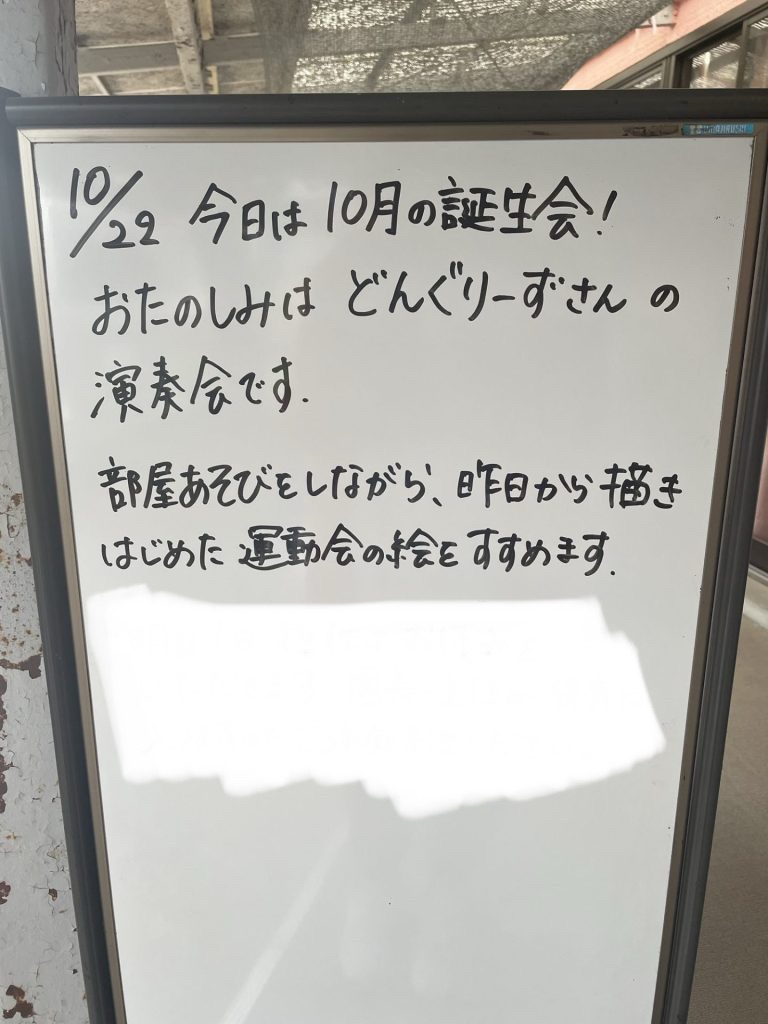 10/22 今日は10月の誕生会!
おたのしみは どんぐりーずさんの
演奏会です.
部屋あそびをしながら、昨日から描き
はじめた 運動会の絵をすすめます.